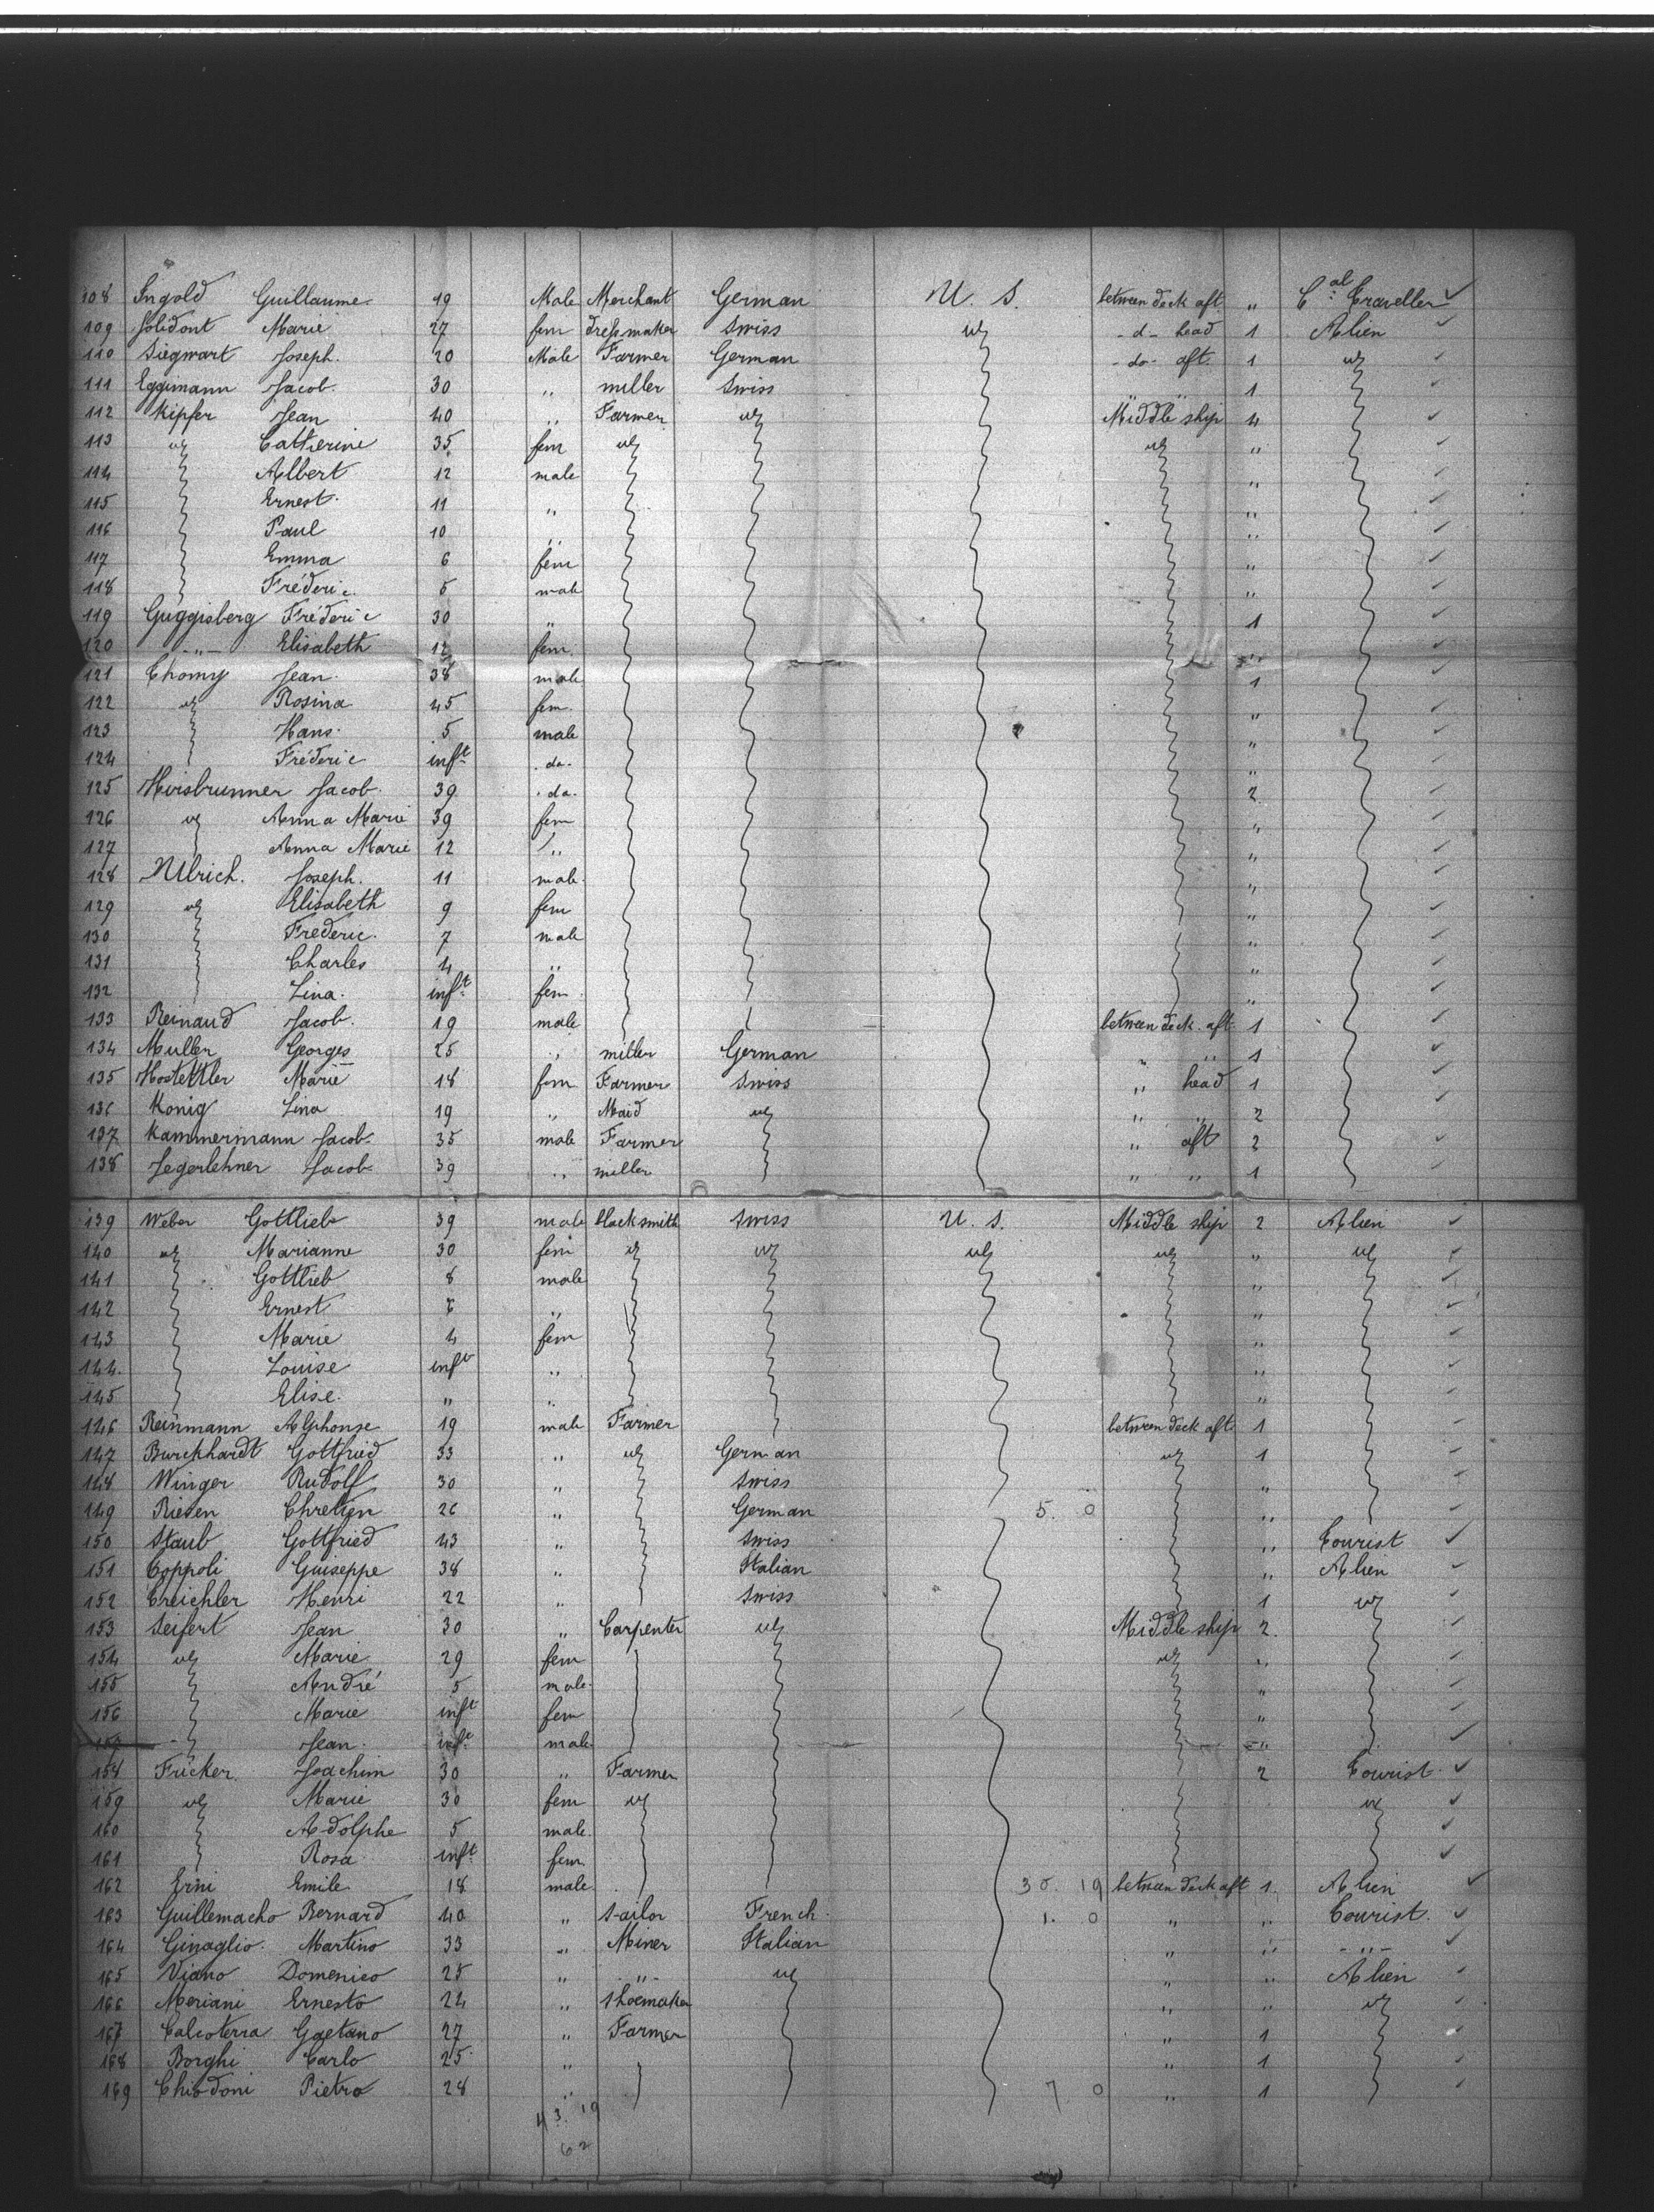 108 Ingold Guillaume 19 Male Merchant German U. S. between deck aft „ C.al Traveller
109 Solidont Marie 27 fem dressmaker Swiss - d - head 1 Alien
110 Siegwart Joseph. 20 Male Farmer German - do - aft. 1
111 Eggimann Jacob. 30 „ miller Swiss „ „ 1
112 Kipfer Jean 40 „ Farmer Middle ship 4
113 Catherine 35 fem „
114 Albert 12 male „
115 Ernest. 11 „ „
116 Paul 10 „ „
117 Emma 6 fem „
118 Fréderic 5 male „
119 Guggisberg Fréderic 30 „ 1
120 - „ - Elisabeth 12 fem. „
121 Thomy Jean. 38 male 1
122 Rosina 45 fem. „
123 Hans. 5 male „
124 Fréderic inft. do. „
125 Hirsbrunner Jacob. 39 do. 2
126 Anna Marie 39 fem „
127 Anna Marie 12 „ „
128 Ulrich. Joseph. 11 male „
129 Elisabeth 9 fem „
130 Frederic. 7 male „
131 Charles 4 „ „
132 Lina. inft. fem „
133 Reinaud Jacob. 19 male between deck aft 1
134 Muller Georges 25 „ miller German „ „ 1
135 Hostettler Marie 18 fem Farmer Swiss „ head 1
136 Konig Lina 19 „ Maid „ „ 2
137 Kammermann Jacob. 35 male Farmer „ aft 2
138 Jegerlehner Jacob 39 „ miller „ „ 1
139 Weber Gottlieb 39 male blacksmith Swiss U. S. Middle ship 2 Alien
140 Marianne 30 fem „
141 Gottlieb 8 male „
142 Ernest „ „
143 Marie 4 fem „
144. Louise inft „ „
145 Elise. „ „ „
146 Reinmann Alphonse 19 male Farmer between deck aft 1
147 Burckhardt Gottfried 33 „ German 1
148 Winger Rudolf 30 „ Swiss „
149 Riesen Chretien 26 „ German 5. 0 „
150 Staub Gottfried 43 „ Swiss „ Tourist
151 Coppoli Guiseppe 38 „ Italian „ Alien
152 Treichler Henri 22 „ Swiss 1
153 Seifert Jean 30 „ Carpenter Middle ship 2.
154 Marie 29 fem „
155 André 5 male. „
156 Marie inft fem „
Jean. inft male. „
158 Fricker Joachim 30 „ Farmer 2 Tourist
159 Marie 30 fem
160 Adolphe 5 male.
161 Rosa inft fem.
162 Erni Emile 18 male 30. 19 between deck aft 1. Alien
163 Guillemacho Bernard 40 „ Sailor French. 1. 0 „ „ Tourist.
164 Ginaglio. Martino 33 „ Miner Italian „ „ - „ -
165 Viano Domenico 25 „ - „ - „ „ Alien
166 Meriani Ernesto 24 „ Shoemaker „ „
167 Calcoterra Gaetano 27 „ Farmer „ 1
168 Borghi Carlo 25 „ „ 1
169 Chiodoni Pietro 28 „ 7 0 „ 1
43. 19
62